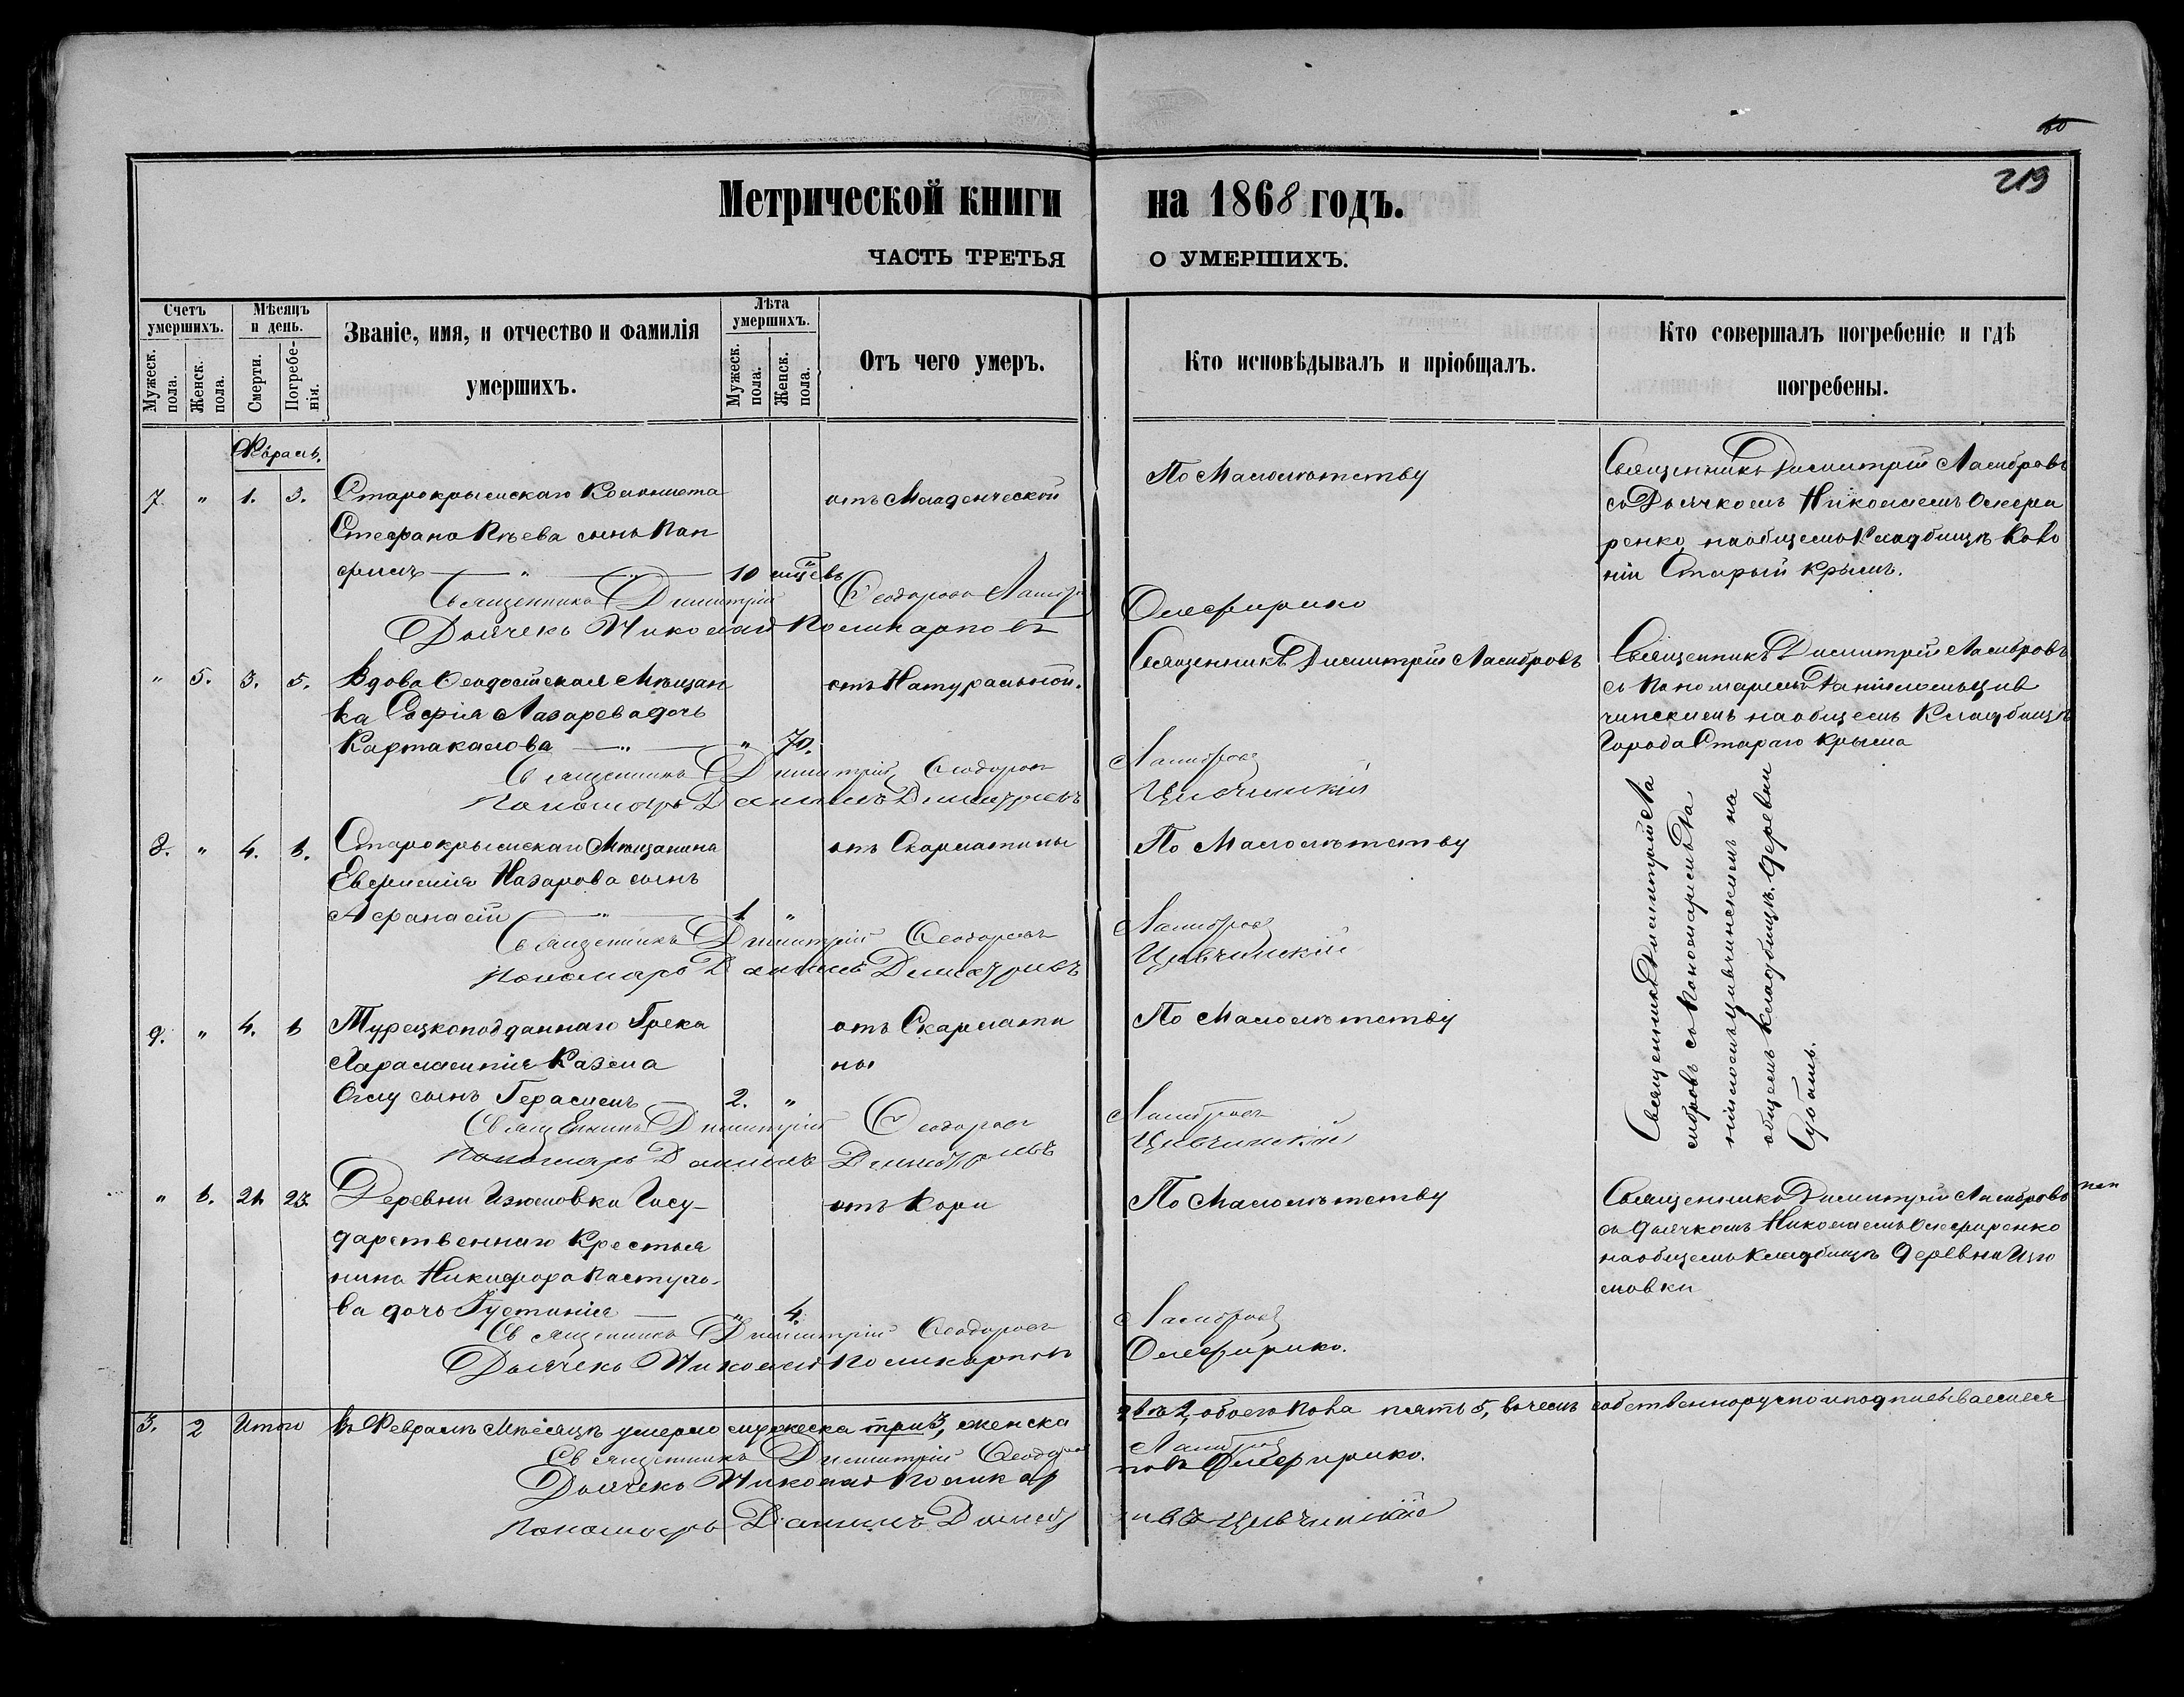 219
Метрической книги на 1868 годъ.
ЧАСТЬ ТРЕТЬЯ О УМЕРШИХЪ.
Счетъ умершихъ.
Мужеск. пола.
Женск. пола.
Мѣсяцъ и день.
Смерти.
Погребе-
нія.
Званіе, имя, и отчество и фамилія
умершихъ.
Лѣта умершихъ.
Мужеск. пола.
Женск. пола.
Отъ чего умеръ.
Кто исповѣдывалъ и пріобщалъ.
Кто совершалъ погребеніе и гдѣ
погребены.
7. " 1. 3. Старокрымскаго Колониста
Стефана сынъ Пан
филъ 10 мцевъ
отъ Младенческой
По Малолѣтству
Священникъ Димитрій Ламбровъ
съ Дьячкомъ Николаемъ Олефи
ренко на общемъ Кладбищѣ Коло
ніи Старый Крымъ.
Священникъ Димитрій Ѳеодоровъ
Дьячекъ Николай Поликарповъ
" 5. 3. 5. Вдова Ѳеодосійская Мѣщан
ка Софія Лазарева дочь
Картакалова " 70.
отъ Натуральной.
Священникъ Димитрій Ламбровъ
Священникъ Димитрій Ламбровъ
съ Пономаремъ Даніиломъ Цив
чинскимъ на общемъ Кладбищѣ
Города Стараго Крыма
Священникъ Димитрій Ѳеодоровъ Ламбровъ
Пономарь Даніилъ Димитріевъ Цивчинскій
8. " 4. 6. Старокрымскаго Мѣщанина
Евфимія Назарова сынъ
Афанасій 1 "
отъ Скарлатины
По Малолѣтству
Священникъ Димитрій Ла
мбровъ съ Пономаремъ Да
ніиломъ Цивчинскимъ на
общемъ Кладбищѣ деревни
Субашъ.
Священникъ Димитрій Ѳеодоровъ Ламбровъ
Пономарь Даніилъ Димитріевъ Цивчинскій
9. " 4. 6 Турецкоподданнаго Грека
Харалампія Казма
Оглу сынъ Герасимъ 2. "
отъ Скарлати
ны
По Малолѣтству
Священникъ Димитрій Ѳеодоровъ Ламбровъ
Пономарь Даніилъ Димитріевъ Цивчинскій
" 6. 21. 23. Деревни Изюмовки Госу-
дарственнаго Крестья
нина Никифора Пастухо-
ва дочь Іустинія " 4.
отъ Кори
По Малолѣтству
Священникъ Димитрій Ламбровъ
съ дьячкомъ Николаемъ Олефиренко
на общемъ Кладбищѣ деревни Изю
мовки
Священникъ Димитрій Ѳеодоровъ Ламбровъ
Дьячекъ Николай Поликарповъ
3. 2 Итого Въ Февралѣ Мѣсяцѣ умерло мужеска три 3, женска двѣ 2, обоего пола пять 5, въ чемъ собственноручно и подписываемся
Священникъ Димитрій Ѳеодоровъ Ламбровъ
Дьячекъ Николай Поликарповъ
Пономарь Даніилъ Цивчинскій